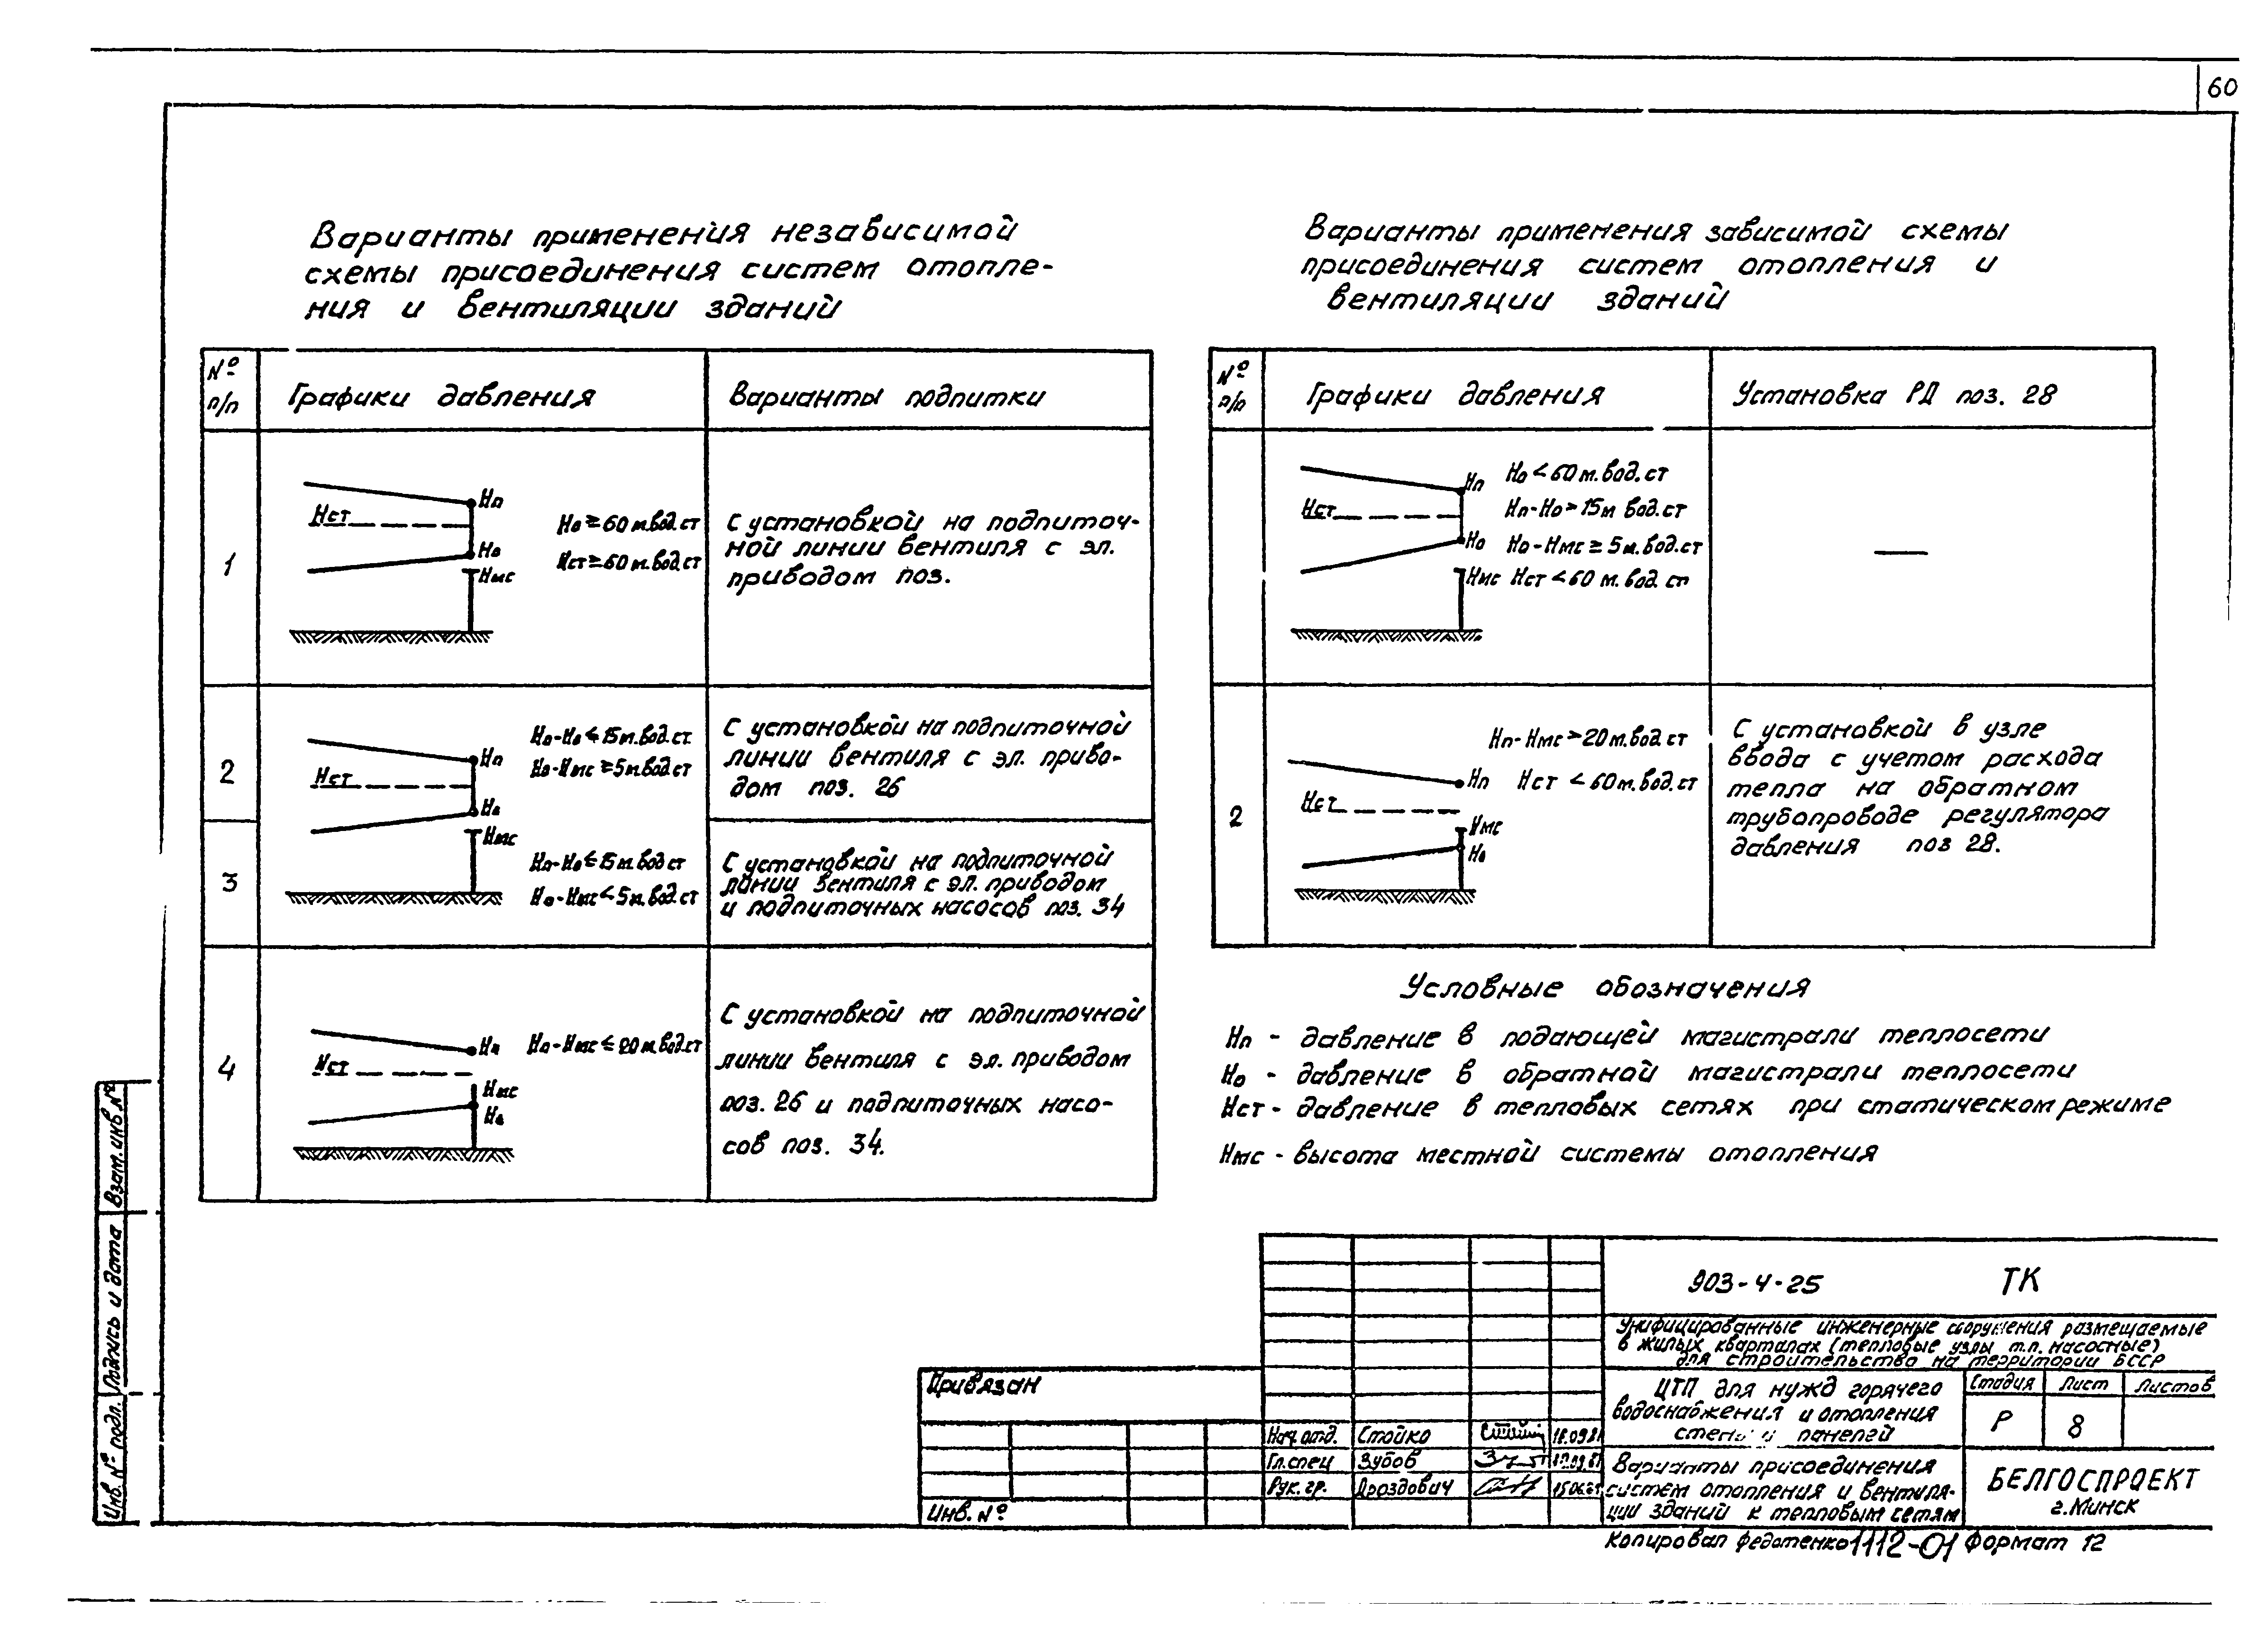 60
Варианты применения независимой
схемы присоединения систем отопле-
ния и вентиляции зданий
№ п/п
Графики давления
Варианты подпитки
1
Нп
Нст
Но
Нмс
Но ≥ 60 м.вод.ст
Нст ≥ 60 м.вод.ст
С установкой на подпиточ-
ной линии вентиля с эл.
приводом поз.
2
Нп
Нст
Но
Нмс
Нп-Но ≤ 15 м.вод.ст.
Но-Нмс ≥ 5 м.вод.ст
С установкой на подпиточной
линии вентиля с эл. приво-
дом поз. 26
3
Нп-Но ≤ 15 м.вод.ст
Но-Нмс < 5 м.вод.ст
С установкой на подпиточной
линии вентиля с эл. приводом
и подпиточных насосов поз. 34
4
Нп
Нст
Нмс
Но
Нп-Нмс ≤ 20 м.вод.ст
С установкой на подпиточной
линии вентиля с эл. приводом
поз. 26 и подпиточных насо-
сов поз. 34.
Варианты применения зависимой схемы
присоединения систем отопления и
вентиляции зданий
№ п/п
Графики давления
Установка РД поз. 28
Нп
Нст
Но
Нмс
Но < 60 м.вод.ст
Нп-Но > 15 м вод.ст
Но-Нмс ≥ 5 м.вод.ст
Нст < 60 м.вод.ст
—
2
Нп
Нст
Нмс
Но
Нп-Нмс > 20 м.вод.ст
Нст < 60 м.вод.ст
С установкой в узле
ввода с учетом расхода
тепла на обратном
трубопроводе регулятора
давления поз 28.
Условные обозначения
Нп - давление в подающей магистрали теплосети
Но - давление в обратной магистрали теплосети
Нст - давление в тепловых сетях при статическом режиме
Нмс - высота местной системы отопления
Взам. инв. №
Подпись и дата
Инв. № подл.
Привязан
Инв. №
Нач. отд. Стойко 18.09.81
Гл. спец Зубов
Рук. гр. Дроздович
903-4-25 ТК
Унифицированные инженерные сооружения размещаемые
в жилых кварталах (тепловые узлы т.п. насосные)
для строительства на территории БССР
ЦТП для нужд горячего
водоснабжения и отопления
панелей
Стадия Лист Листов
Р 8
Варианты присоединения
систем отопления и вентиля-
ции зданий к тепловым сетям
БЕЛГОСПРОЕКТ
г. Минск
Копировал Федотенко 1112-01 Формат 12